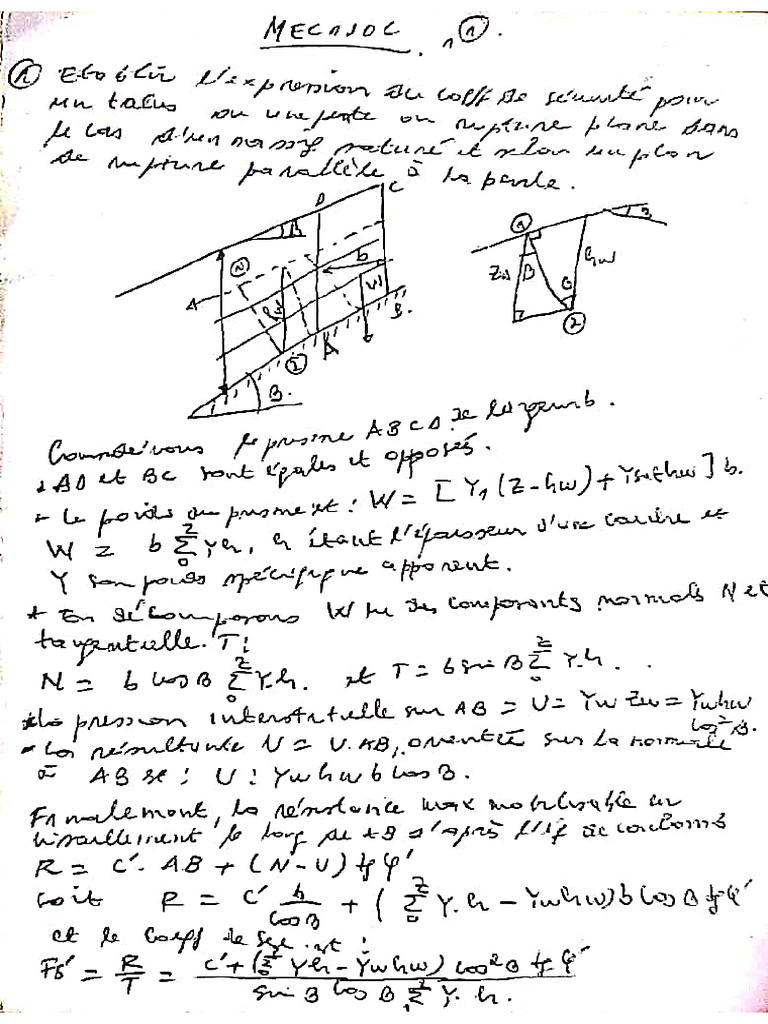 MECASOL ①.
① Etablir l'expression du coeff de sécurité pour
un talus ou une pente en rupture plane dans
le cas d'un massif saturé et selon un plan
de rupture parallèle à la pente.
D C
β
① b
W
hw
② A B
β.
① β
Zw β hw
②
le prisme ABCD de largeur b.
* AD et BC sont égales et opposés.
- le poids du prisme est : W = [γ1 (Z - hw) + γsat hw] b.
W = b Σ₀ᶻ γh, h étant l'épaisseur d'une couche et
γ son poids spécifique apparent.
* En décomposons W en des composants normals N et
tangentielle T :
N = b cos β Σ₀ᶻ γ.h. et T = b sin β Σ₀ᶻ γ.h.
* la pression interstitielle sur AB = U = γw Zw = γw hw
cos²β.
- la résultante U = U.AB, orientée sur la normale
à AB : U : γw hw b cos β.
Finalement, la résistance max mobilisable en
cisaillement le long de AB d'après de coulomb
R = C'. AB + (N - U) tg φ'
soit R = C' b/cos β + (Σ₀ᶻ γ.h - γw hw) b cos β tg φ'
et le coeff de est :
Fs' = R/T = C' + (Σ₀ᶻ γh - γw hw) cos² β tg φ' / sin β cos β Σ₀ᶻ γ.h.